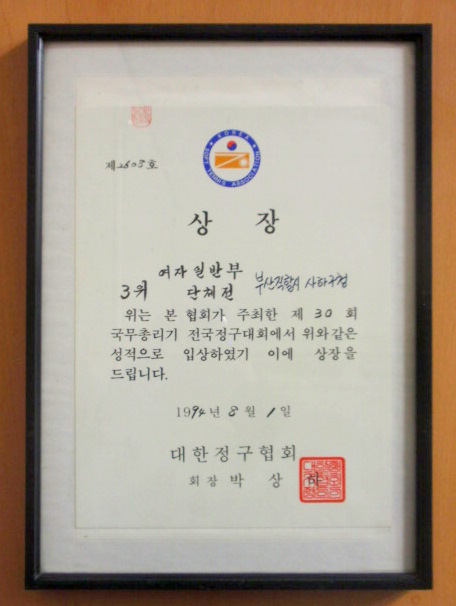 KOREA
SOFT TENNIS ASSOCIATION
제2603호
상 장
여자일반부
3위 단체전 부산직할시 사하구청
위는 본 협회가 주최한 제 30 회
국무총리기 전국정구대회에서 위와같은
성적으로 입상하였기 이에 상장을
드립니다.
1994년 8월 1일
대한정구협회
회장 박 상 하